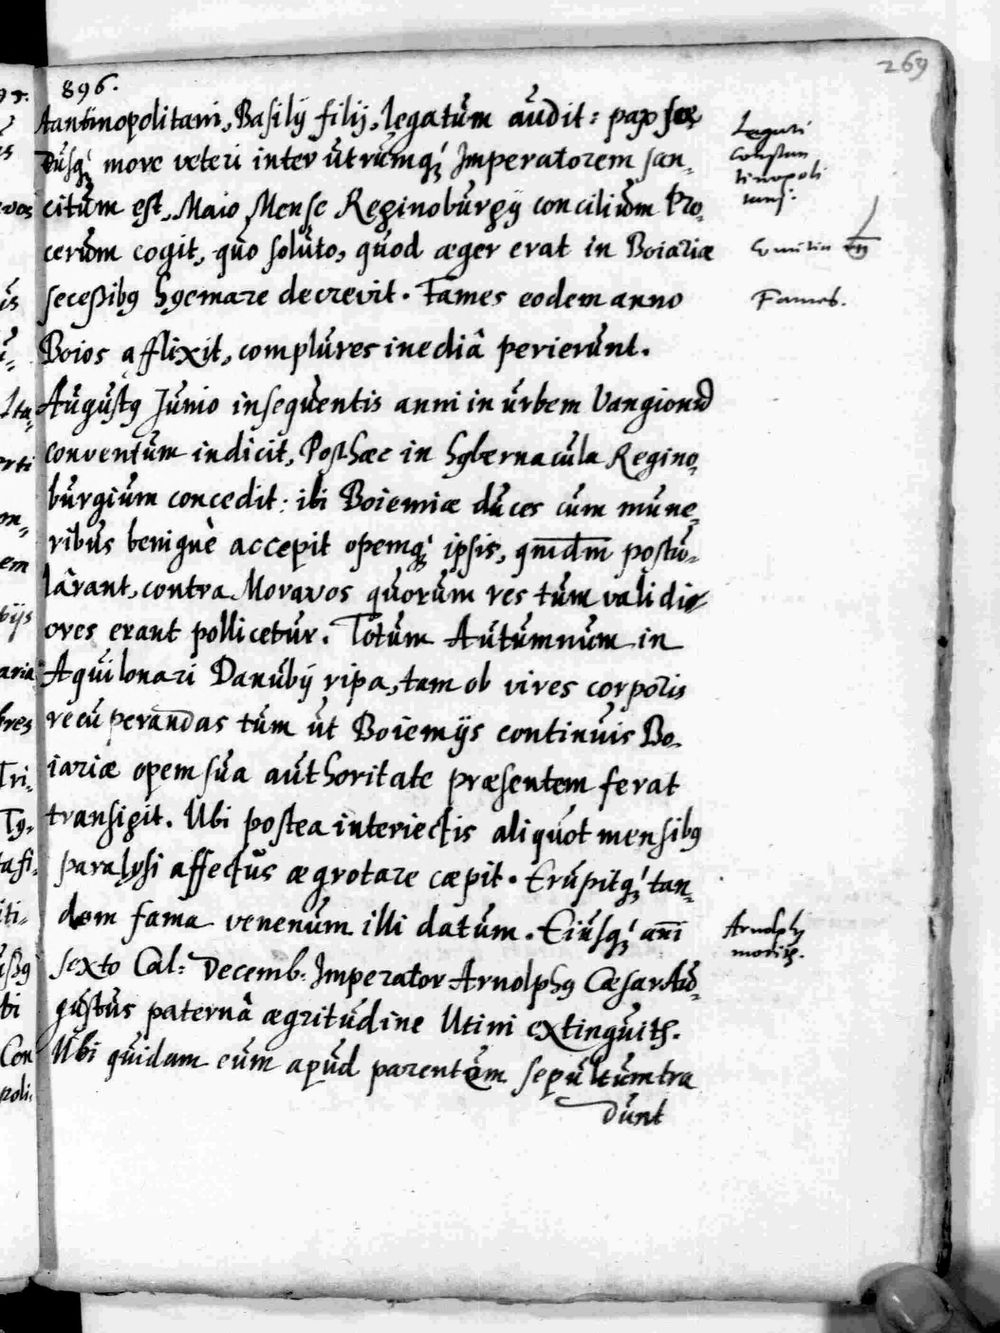 269
896.
stantinopolitani, Basilij filij, legatum audit: pax foe
dusq́; more veteri inter utrumq́; Imperatorem san-
citum est, Maio Mense Reginoburgij concilium Pro-
cerum cogit, quo soluto, quod æger erat in Boiariæ
secessibus hyemare decrevit. Fames eodem anno
Boios afflixit, complures inediâ perierunt.
Augustus Junio insequentis anni in urbem Vangionū
conventum indicit, Posthæc in hybernacula Regino-
burgium concedit: ibi Boiemiæ duces cum mune-
ribus benignè accepit opemq́; ipsis, postu-
lârant, contra Moravos quorum res tum validi-
ores erant pollicetur. Totum Autumnum in
Aquilonari Danubij ripa, tam ob vires corporis
recuperandas tum ut Boiemijs continuis Bo-
iariæ opem sua authoritate præsentem ferat
transigit. Ubi postea interiectis aliquot mensibus
paralysi affectus ægrotare cæpit. Erupitq́; tan-
dem fama venenum illi datum. Eiusq́; añi
sexto Cal: Decemb. Imperator Arnolphus Cæsar Au-
gustus paternâ ægritudine Utini extinguitr.
Ubi quidam eum apud parentem sepultum tra
dunt
Legati
Constan
tinopoli
tani.
Comitia
Fames.
Arnolphi
mors.